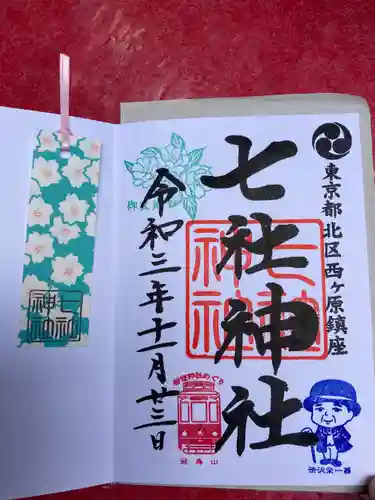 東京都北区西ヶ原鎮座
七社神社
七社神社
令和三年十一月廿三日
御朱印めぐり
飛鳥山
渋沢栄一翁
七社神社